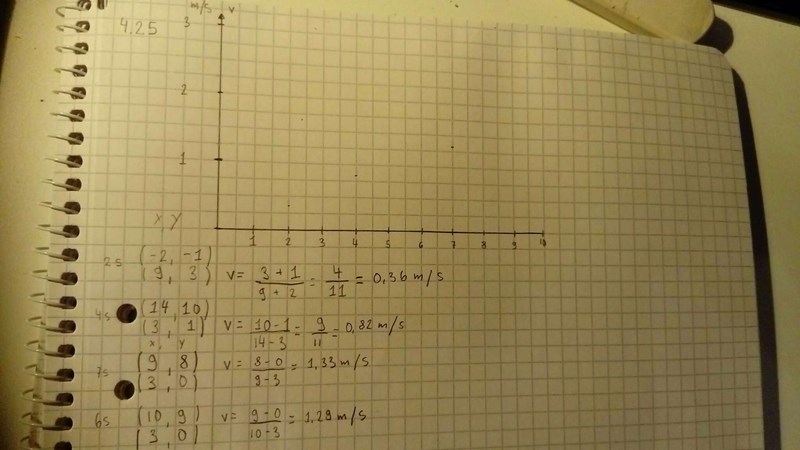 m/s v
4.25
3
2
1
1 2 3 4 5 6 7 8 9 10
x, y
2s (-2, -1)
(9, 3) v = 3+1/9+2 = 4/11 = 0,36 m/s
4s (14, 10)
(3, 1) v = 10-1/14-3 = 9/11 = 0,82 m/s
x, y
7s (9, 8)
(3, 0) v = 8-0/9-3 = 1,33 m/s
6s (10, 9)
(3, 0) v = 9-0/10-3 = 1,29 m/s